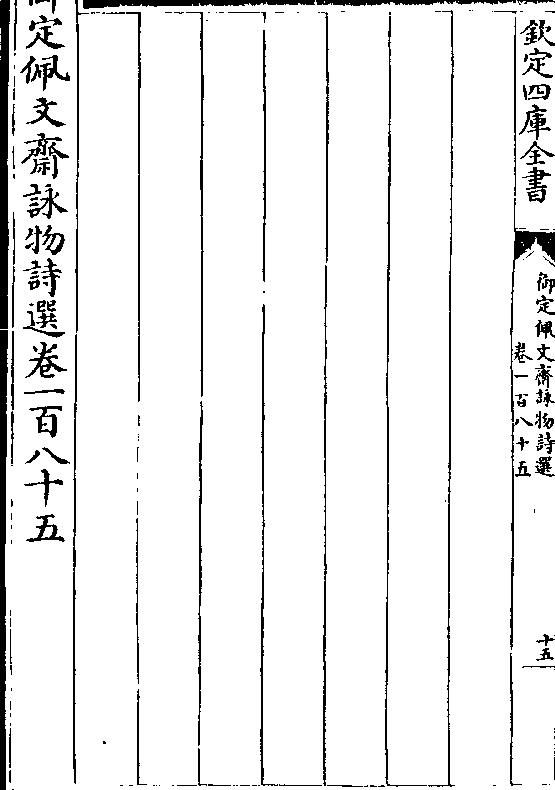 欽定四庫全書
御定佩文齋詠物詩選
卷一百八十五
十五
御定佩文齋詠物詩選卷一百八十五